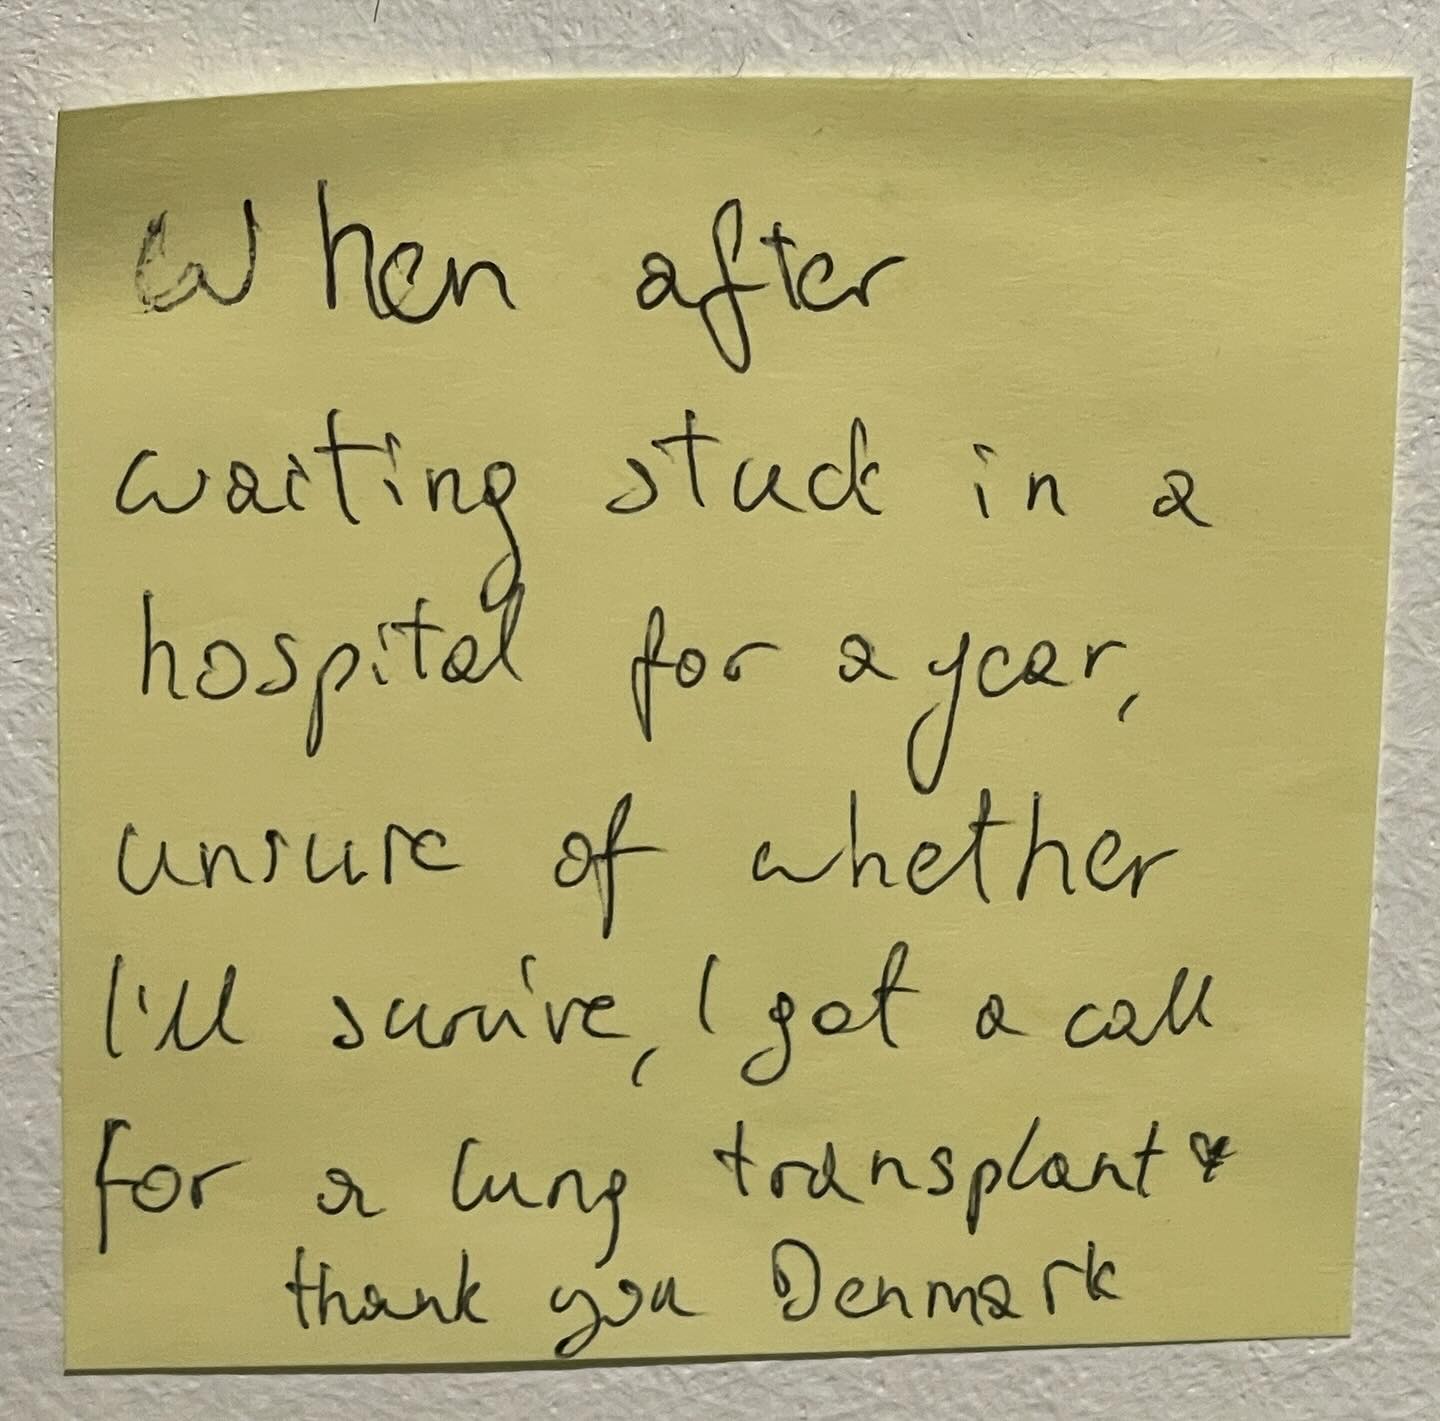 When after
waiting stuck in a
hospital for a year,
unsure of whether
I'll survive, I got a call
for a lung transplant ♥
thank you Denmark